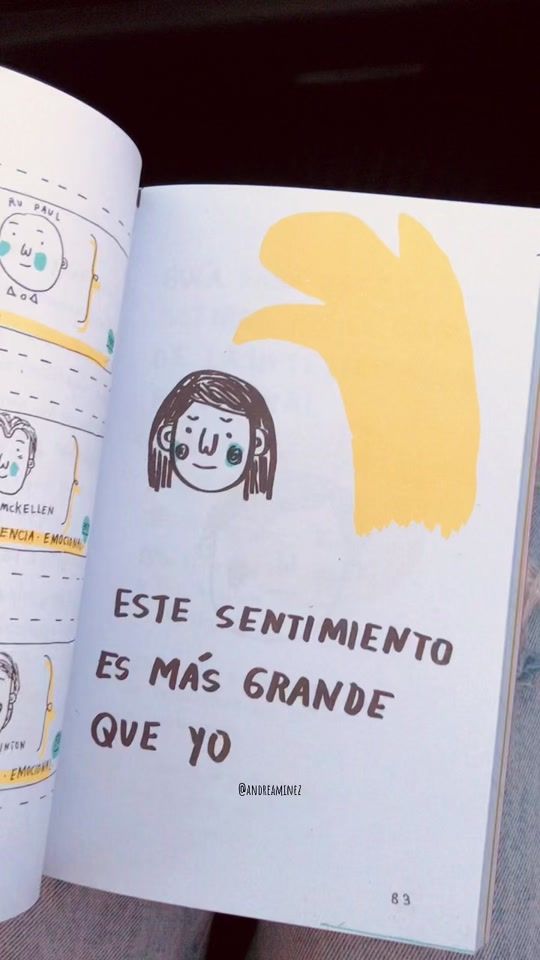 RU PAUL
McKELLEN
ENCIA · EMOCIONAL
· EMOCIONAL
ESTE SENTIMIENTO
ES MÁS GRANDE
QUE YO
@ANDREAMINEZ
83